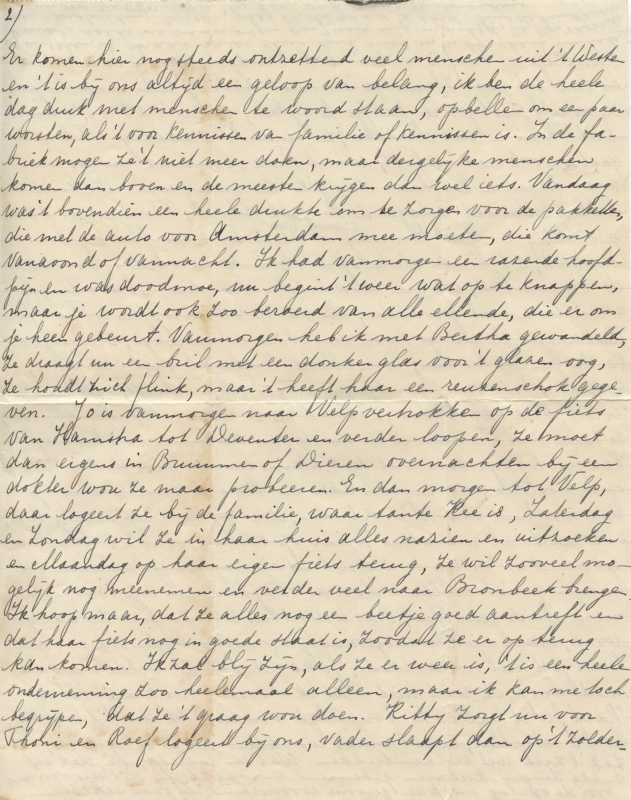 2)
Er komen hier nog steeds ontzettend veel menschen uit 't Westen
en 't is bij ons altijd een geloop van belang, ik ben de heele
dag druk met menschen te woord staan, opbellen om een paar
worsten, als 't voor kennissen van familie of kennissen is. In de fa-
briek mogen ze 't niet meer doen, maar dergelijke menschen
komen dan boven en de meeste krijgen dan wel iets. Vandaag
was 't bovendien een heele drukte om te zorgen voor de pakketten,
die met de auto voor Amsterdam mee moeten, die komt
vanavond of vannacht. Ik had vanmorgen een razende hoofd-
pijn en was doodmoe, nu begint 't weer wat op te knappen,
maar je wordt ook zoo beroerd van alle ellende, die er om
je heen gebeurt. Vanmorgen heb ik met Bertha gewandeld,
ze draagt nu een bril met een donker glas voor 't glazen oog,
ze houdt zich flink, maar 't heeft haar een reuzenschok gege-
ven. Jo is vanmorgen naar Velp vertrokken op de fiets
van Hamstra tot Deventer en verder loopen, ze moet
dan ergens in Brummen of Dieren overnachten bij een
dokter wou ze maar probeeren. En dan morgen tot Velp,
daar logeert ze bij de familie, waar tante Kee is, Zaterdag
en Zondag wil ze in haar huis alles nazien en uitzoeken
en Maandag op haar eigen fiets terug, ze wil zooveel mo-
gelijk nog meenemen en verder veel naar Bronbeek brengen.
Ik hoop maar, dat ze alles nog een beetje goed aantreft en
dat haar fiets nog in goede staat is, zoodat ze er op terug
kan komen. Ik zal blij zijn, als ze er weer is, 't is een heele
onderneming zoo heelemaal alleen, maar ik kan me toch
begrijpen, dat ze 't graag wou doen. Kitty zorgt nu voor
Thoni en Roef logeert bij ons, vader slaapt dan op 't zolder-